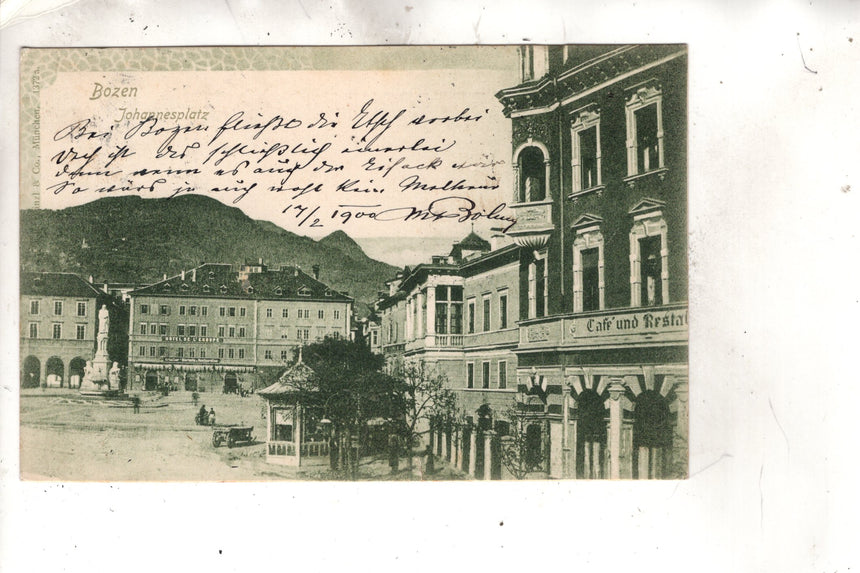 Bozen
Johannesplatz
Bei Bozen fließt die Etsch vorbei
Doch ist das schließlich einerlei
denn wenn es auch der Eisack wär
So wärs ja auch noch kein Malheur
17/2 1900
& Co., München. 1372
HOTEL DE L'EUROPE
Café und Restau